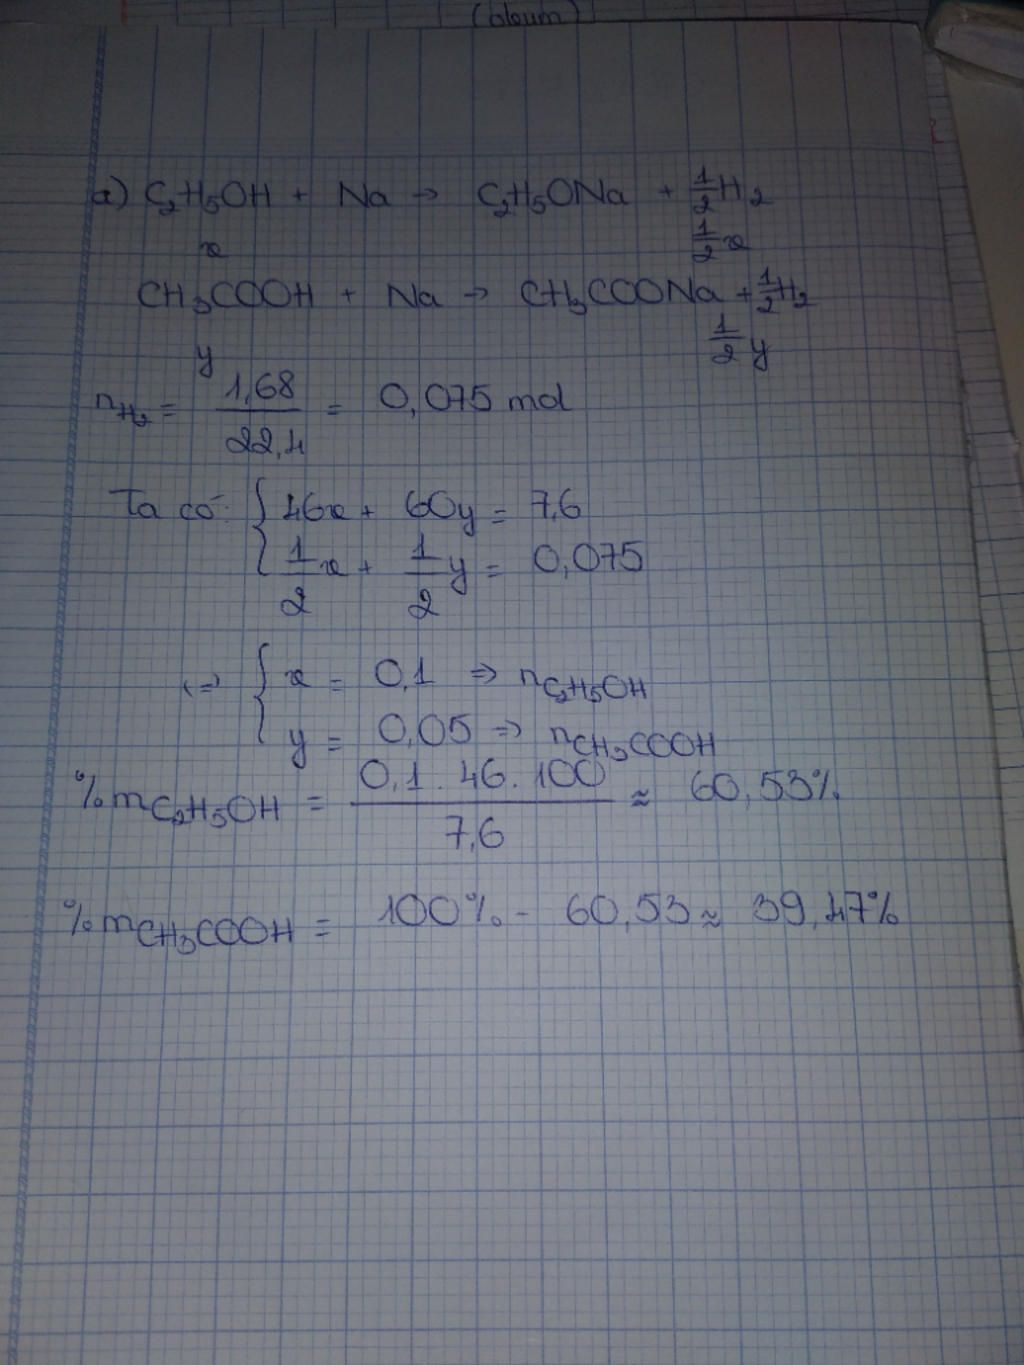 (oleum)
a) C₂H₅OH + Na → C₂H₅ONa + 1/2 H₂
x 1/2 x
CH₃COOH + Na → CH₃COONa + 1/2 H₂
y 1/2 y
n_H₂ = 1,68/22,4 = 0,075 mol
Ta có: { 46x + 60y = 7,6
1/2 x + 1/2 y = 0,075
(=) { x = 0,1 => n_C₂H₅OH
y = 0,05 => n_CH₃COOH
%m_C₂H₅OH = 0,1 . 46 . 100 / 7,6 ≈ 60,53%
%m_CH₃COOH = 100% - 60,53 ≈ 39,47%